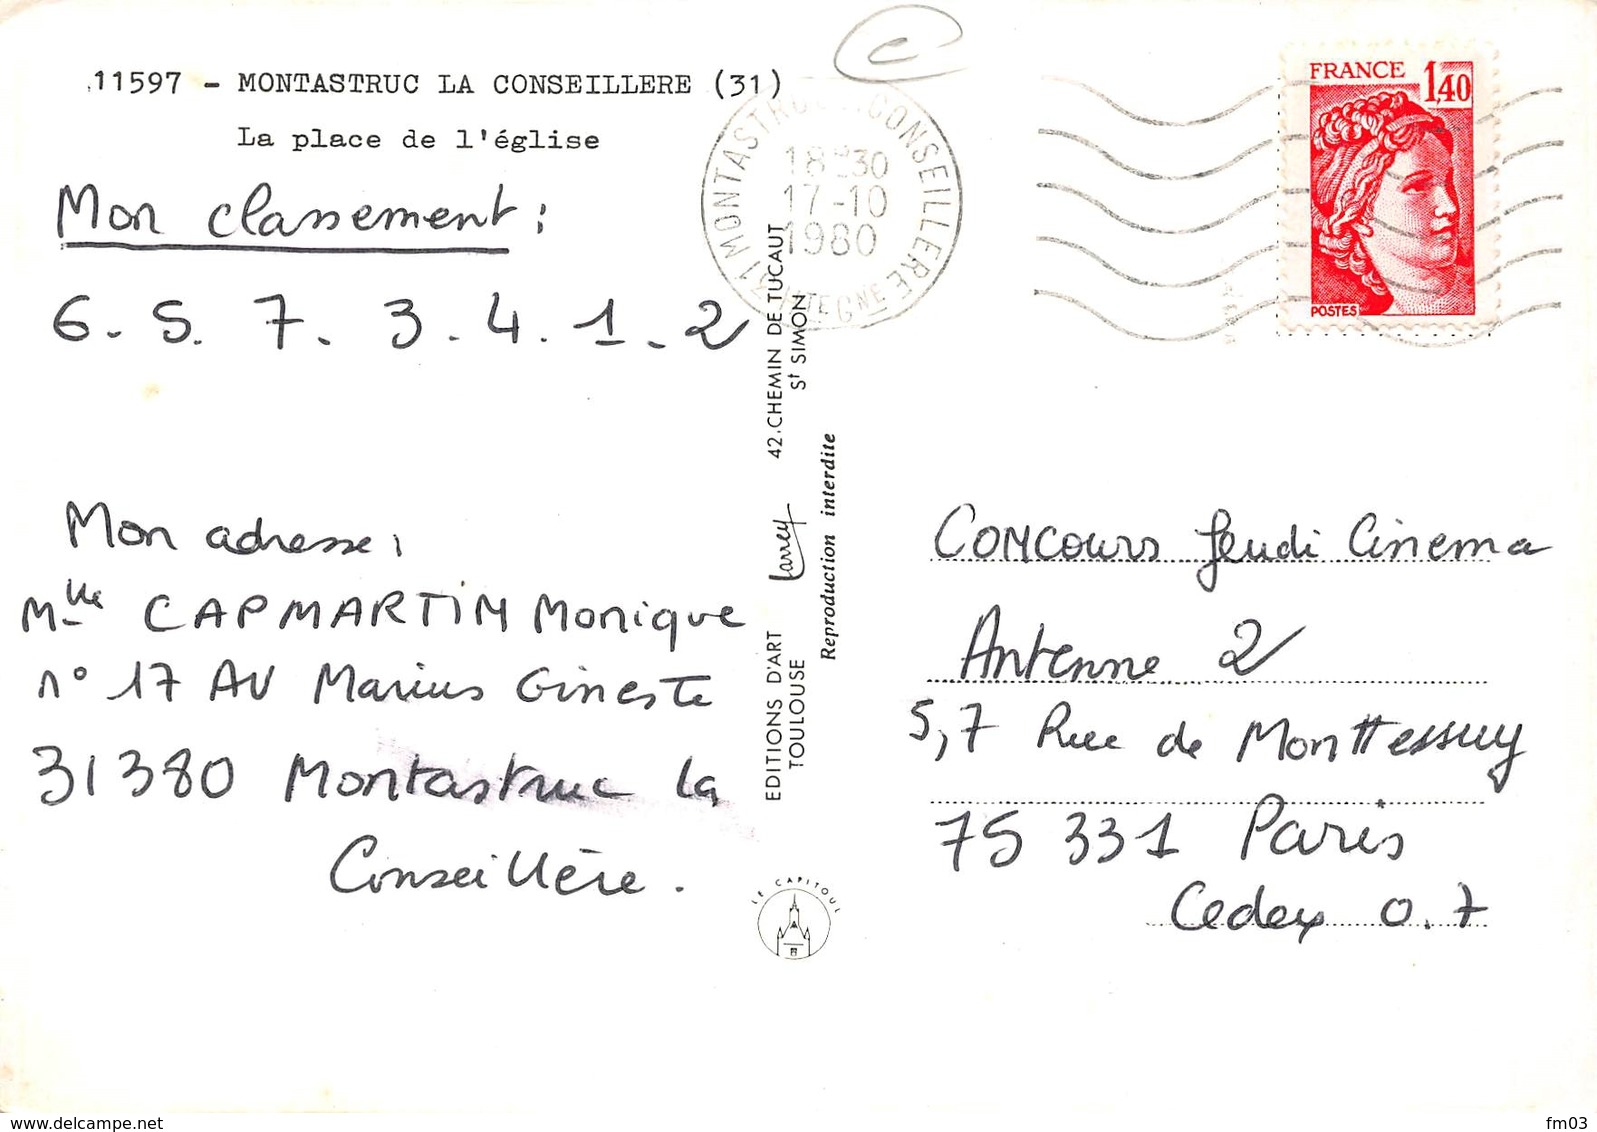 11597 - MONTASTRUC LA CONSEILLERE (31)
La place de l'église
Mon classement :
6. 5. 7. 3. 4. 1. 2
Mon adresse :
Mlle CAPMARTIN Monique
n° 17 AV Marius Gineste
31380 Montastruc la
Conseillère.
31 MONTASTRUC CONSEILLERE
18H30
17-10
1980
Hte GNE
FRANCE 1,40
POSTES
EDITIONS D'ART Larrey 42. CHEMIN DE TUCAUT
TOULOUSE St SIMON
Reproduction interdite
LE CAPITOUL
Concours Jeudi Cinema
Antenne 2
5,7 Rue de Monttessuy
75 331 Paris
Cedex 0.7
delcampe.net
fm03